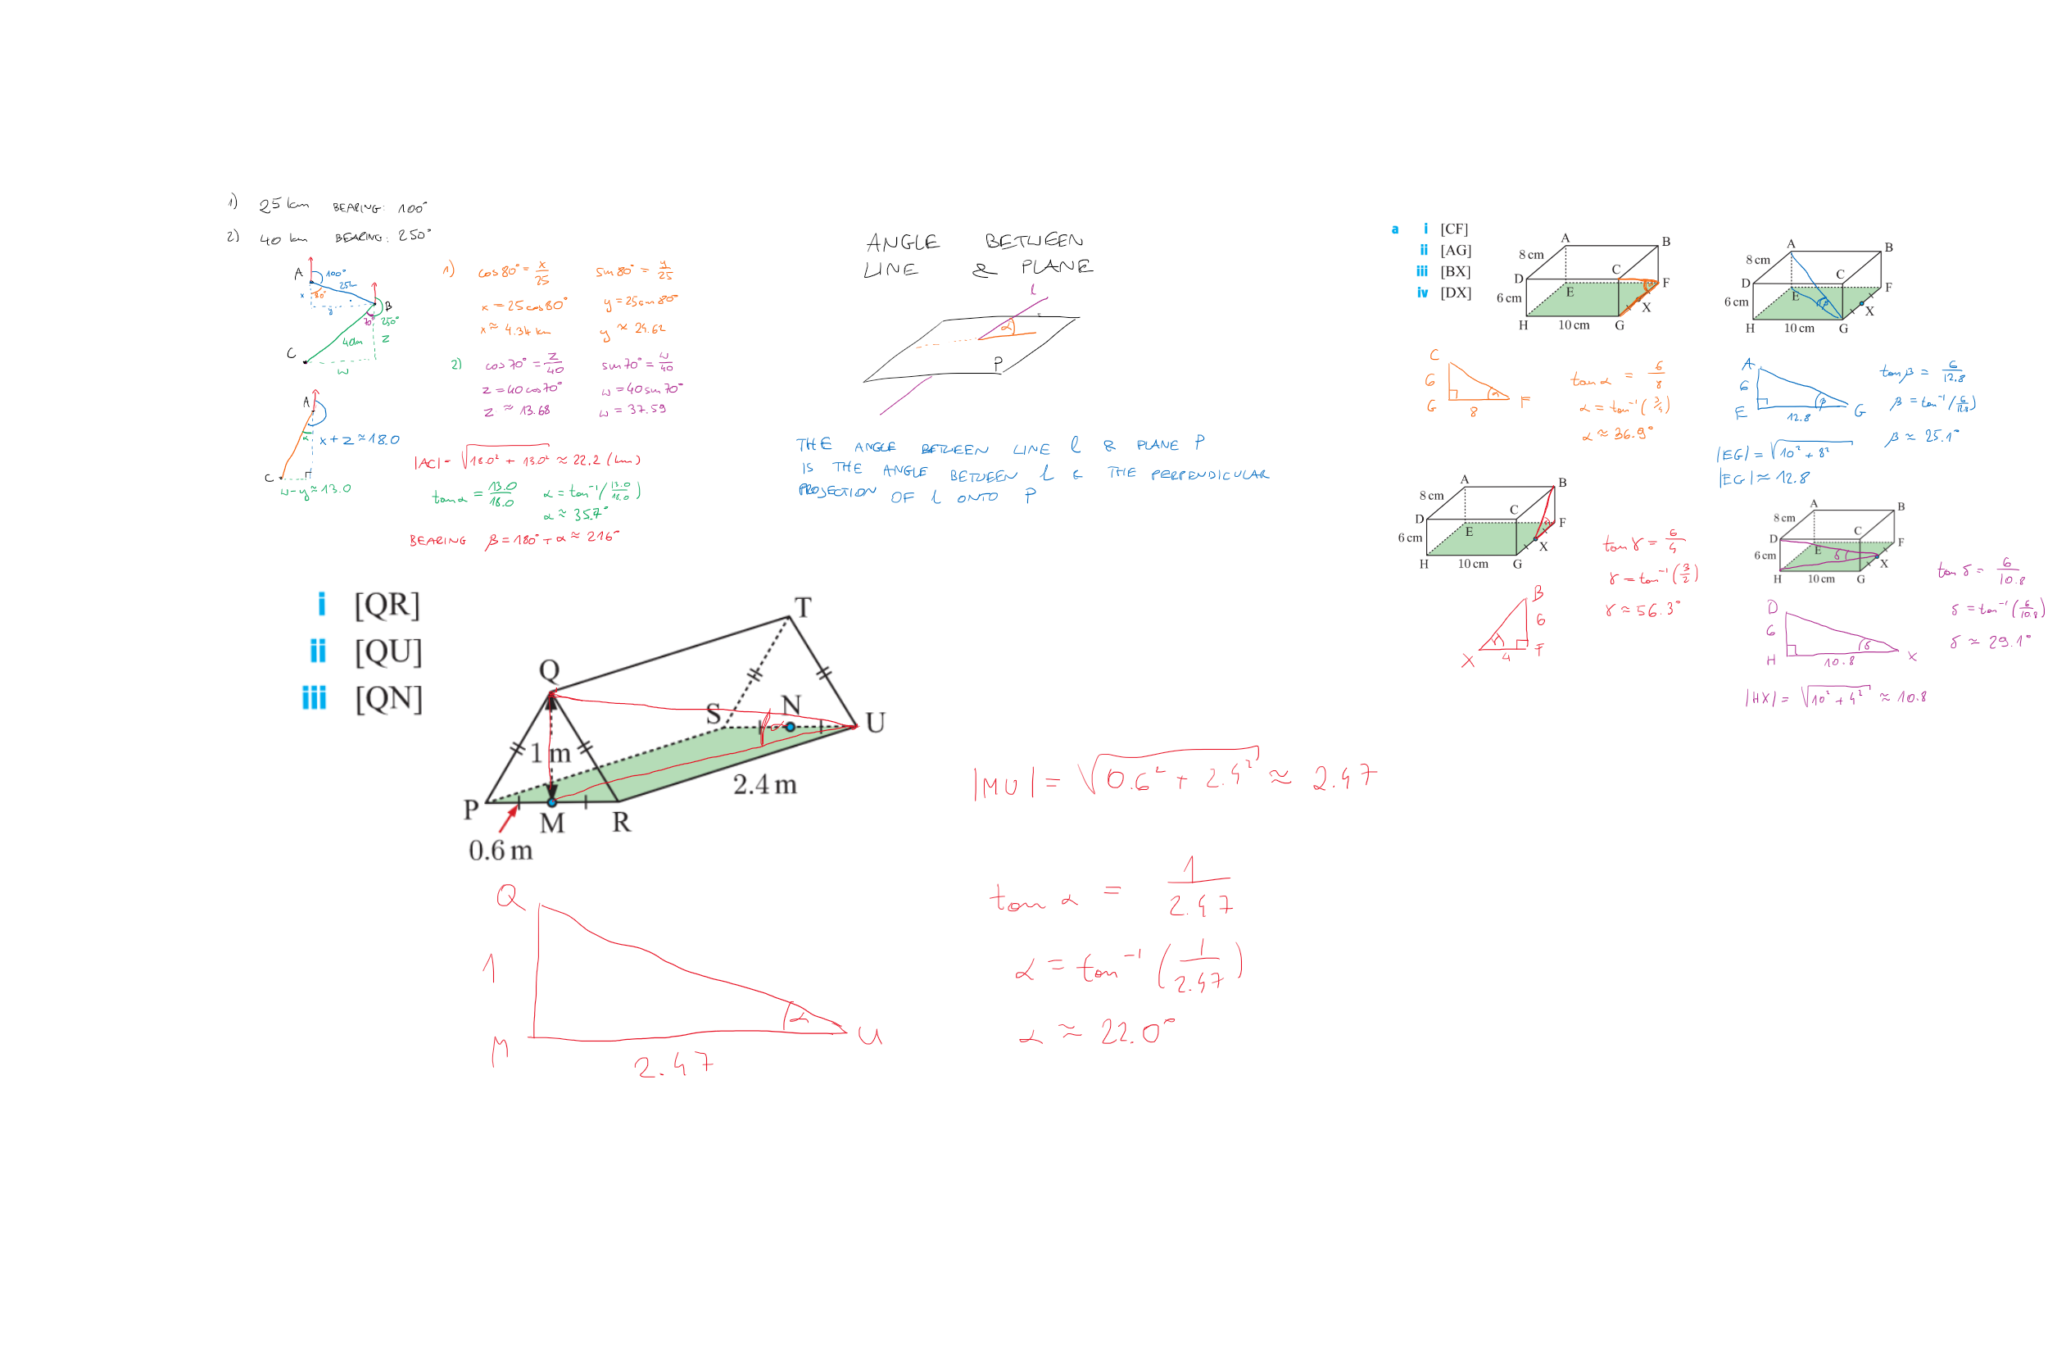 1) 25 km BEARING: 100°
2) 40 km BEARING: 250°
A 100°
25k
x 80°
y
B
70° 250°
40km z
C
w
1) cos 80° = x/25 sin 80° = y/25
x = 25 cos 80° y = 25 sin 80°
x ≈ 4.34 km y ≈ 24.62
2) cos 70° = z/40 sin 70° = w/40
z = 40 cos 70° w = 40 sin 70°
z ≈ 13.68 w = 37.59
A
α x + z ≈ 18.0
C H
w - y ≈ 13.0
|AC| = √18.0² + 13.0² ≈ 22.2 (km)
tan α = 13.0/18.0 α = tan⁻¹(13.0/18.0)
α ≈ 35.7°
BEARING β = 180° + α ≈ 216°
ANGLE BETWEEN
LINE & PLANE
l
α
P
THE ANGLE BETWEEN LINE l & PLANE P
IS THE ANGLE BETWEEN l & THE PERPENDICULAR
PROJECTION OF l ONTO P
a i [CF]
ii [AG]
iii [BX]
iv [DX]
A B
8 cm
D C
6 cm E F
X
H 10 cm G
C
6
G 8 α F
tan α = 6/8
α = tan⁻¹(3/4)
α ≈ 36.9°
A B
8 cm
D C
6 cm E β F
X
H 10 cm G
A
6
E 12.8 β G
tan β = 6/12.8
β = tan⁻¹(6/12.8)
β ≈ 25.1°
|EG| = √10² + 8²
|EG| ≈ 12.8
A B
8 cm
D C
6 cm E F
X
H 10 cm G
B
6
X 4 F
tan γ = 6/4
γ = tan⁻¹(3/2)
γ ≈ 56.3°
A B
8 cm
D C
6 cm E δ F
X
H 10 cm G
D
6
H 10.8 δ X
tan δ = 6/10.8
δ = tan⁻¹(6/10.8)
δ ≈ 29.1°
|HX| = √10² + 4² ≈ 10.8
i [QR]
ii [QU]
iii [QN]
T
Q
S N U
α
1 m
2.4 m
P M R
0.6 m
|MU| = √0.6² + 2.4² ≈ 2.47
Q
1
M 2.47 α U
tan α = 1/2.47
α = tan⁻¹(1/2.47)
α ≈ 22.0°